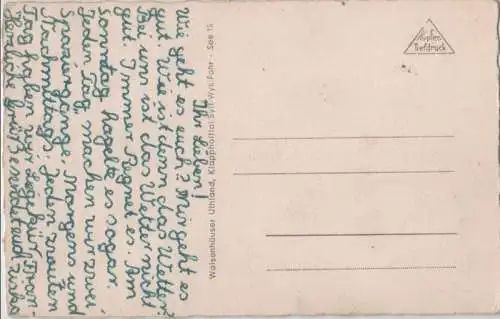 Ihr Lieben!
Wie geht es euch? Mir geht es
gut. Wie ist denn das Wetter?
Bei uns ist das Wetter nicht
gut. Immer Regnet es. Am
Sonntag hagelte es sogar.
Jeden Tag machen wir zwei
Spaziergänge. Morgens und
Nachmittags. Jeden zweiten
Tag haben wir
Herzliche Grüße
Waisenhäuser Uthland, Klappholttal Sylt-Wyk Föhr - See 15
Kupfer
Tiefdruck